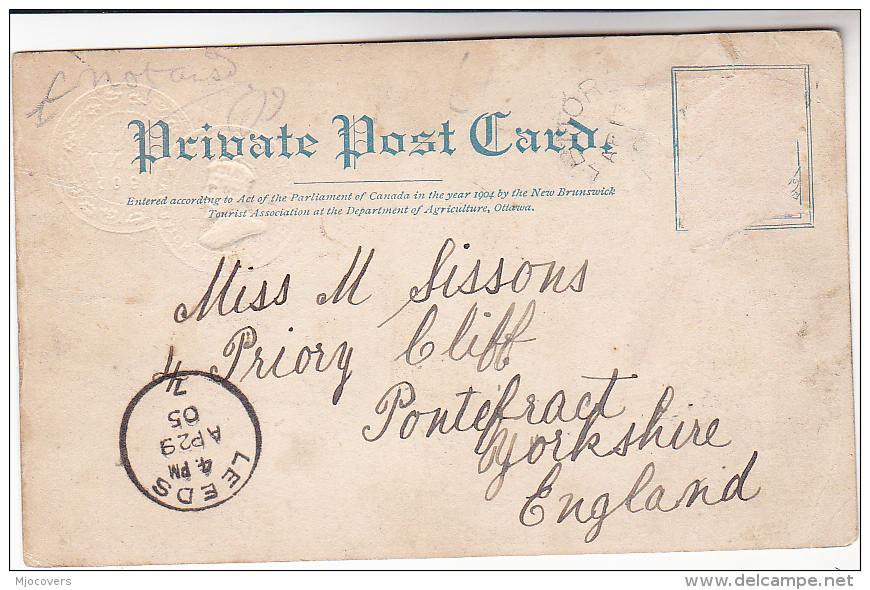 Private Post Card.
Entered according to Act of the Parliament of Canada in the year 1904 by the New Brunswick
Tourist Association at the Department of Agriculture, Ottawa.
Miss M Sissons
4 Priory Cliff
Pontefract
Yorkshire
England
LEEDS
4. PM
AP 29
05
Mjocovers
delcampe.net